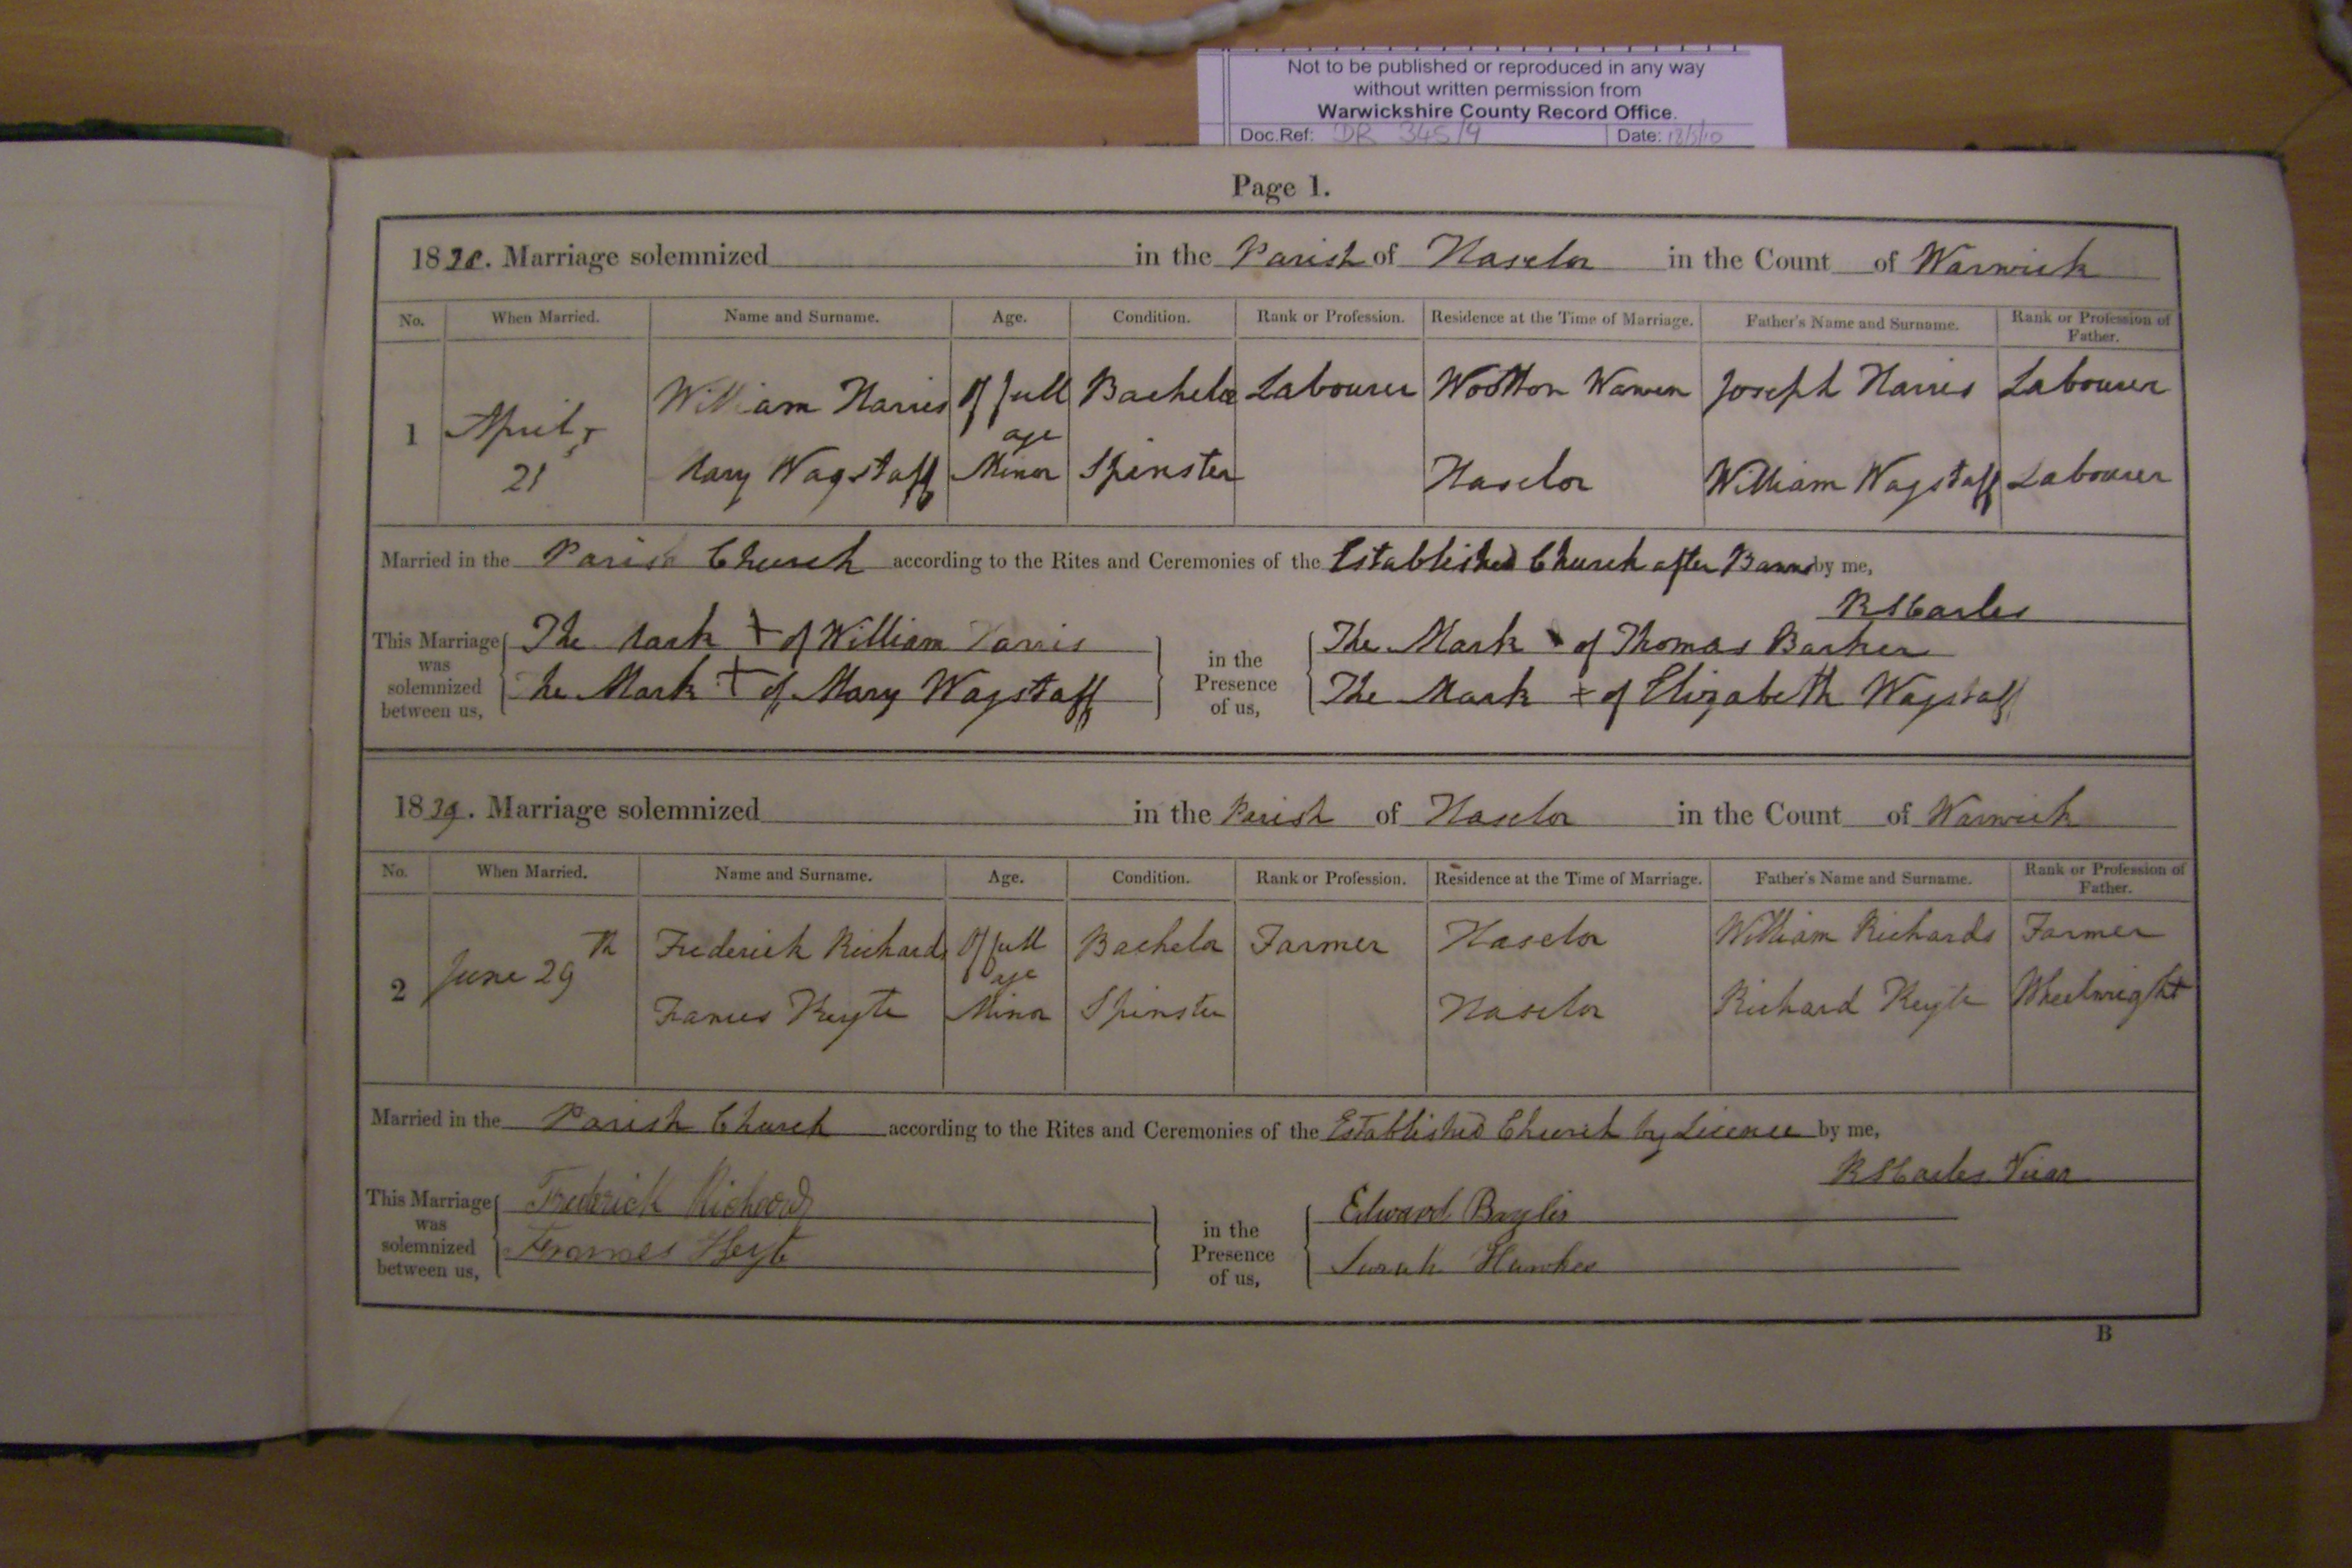 Not to be published or reproduced in any way
without written permission from
Warwickshire County Record Office.
Doc.Ref: DR 345/9 Date: 18/5/10
Page 1.
1838. Marriage solemnized in the Parish of Haselor in the Count of Warwick
No. When Married. Name and Surname. Age. Condition. Rank or Profession. Residence at the Time of Marriage. Father's Name and Surname. Rank or Profession of Father.
1 April 21 William Harris Of full age Bachelor Labourer Wootton Wawen Joseph Harris Labourer
Mary Wagstaff Minor Spinster Haselor William Wagstaff Labourer
Married in the Parish Church according to the Rites and Ceremonies of the Established Church after Banns by me,
R S Carles
This Marriage was solemnized between us, The Mark + of William Harris
The Mark + of Mary Wagstaff
in the Presence of us, The Mark x of Thomas Barker
The Mark + of Elizabeth Wagstaff
1839. Marriage solemnized in the Parish of Haselor in the Count of Warwick
No. When Married. Name and Surname. Age. Condition. Rank or Profession. Residence at the Time of Marriage. Father's Name and Surname. Rank or Profession of Father.
2 June 29th Frederick Richards Of full age Bachelor Farmer Haselor William Richards Farmer
Frances Keyte Minor Spinster Haselor Richard Keyte Wheelwright
Married in the Parish Church according to the Rites and Ceremonies of the Established Church by Licence by me,
R S Carles Vicar
This Marriage was solemnized between us, Frederick Richards
Frances Keyte
in the Presence of us, Edward Baylis
Sarah Hawkes
B